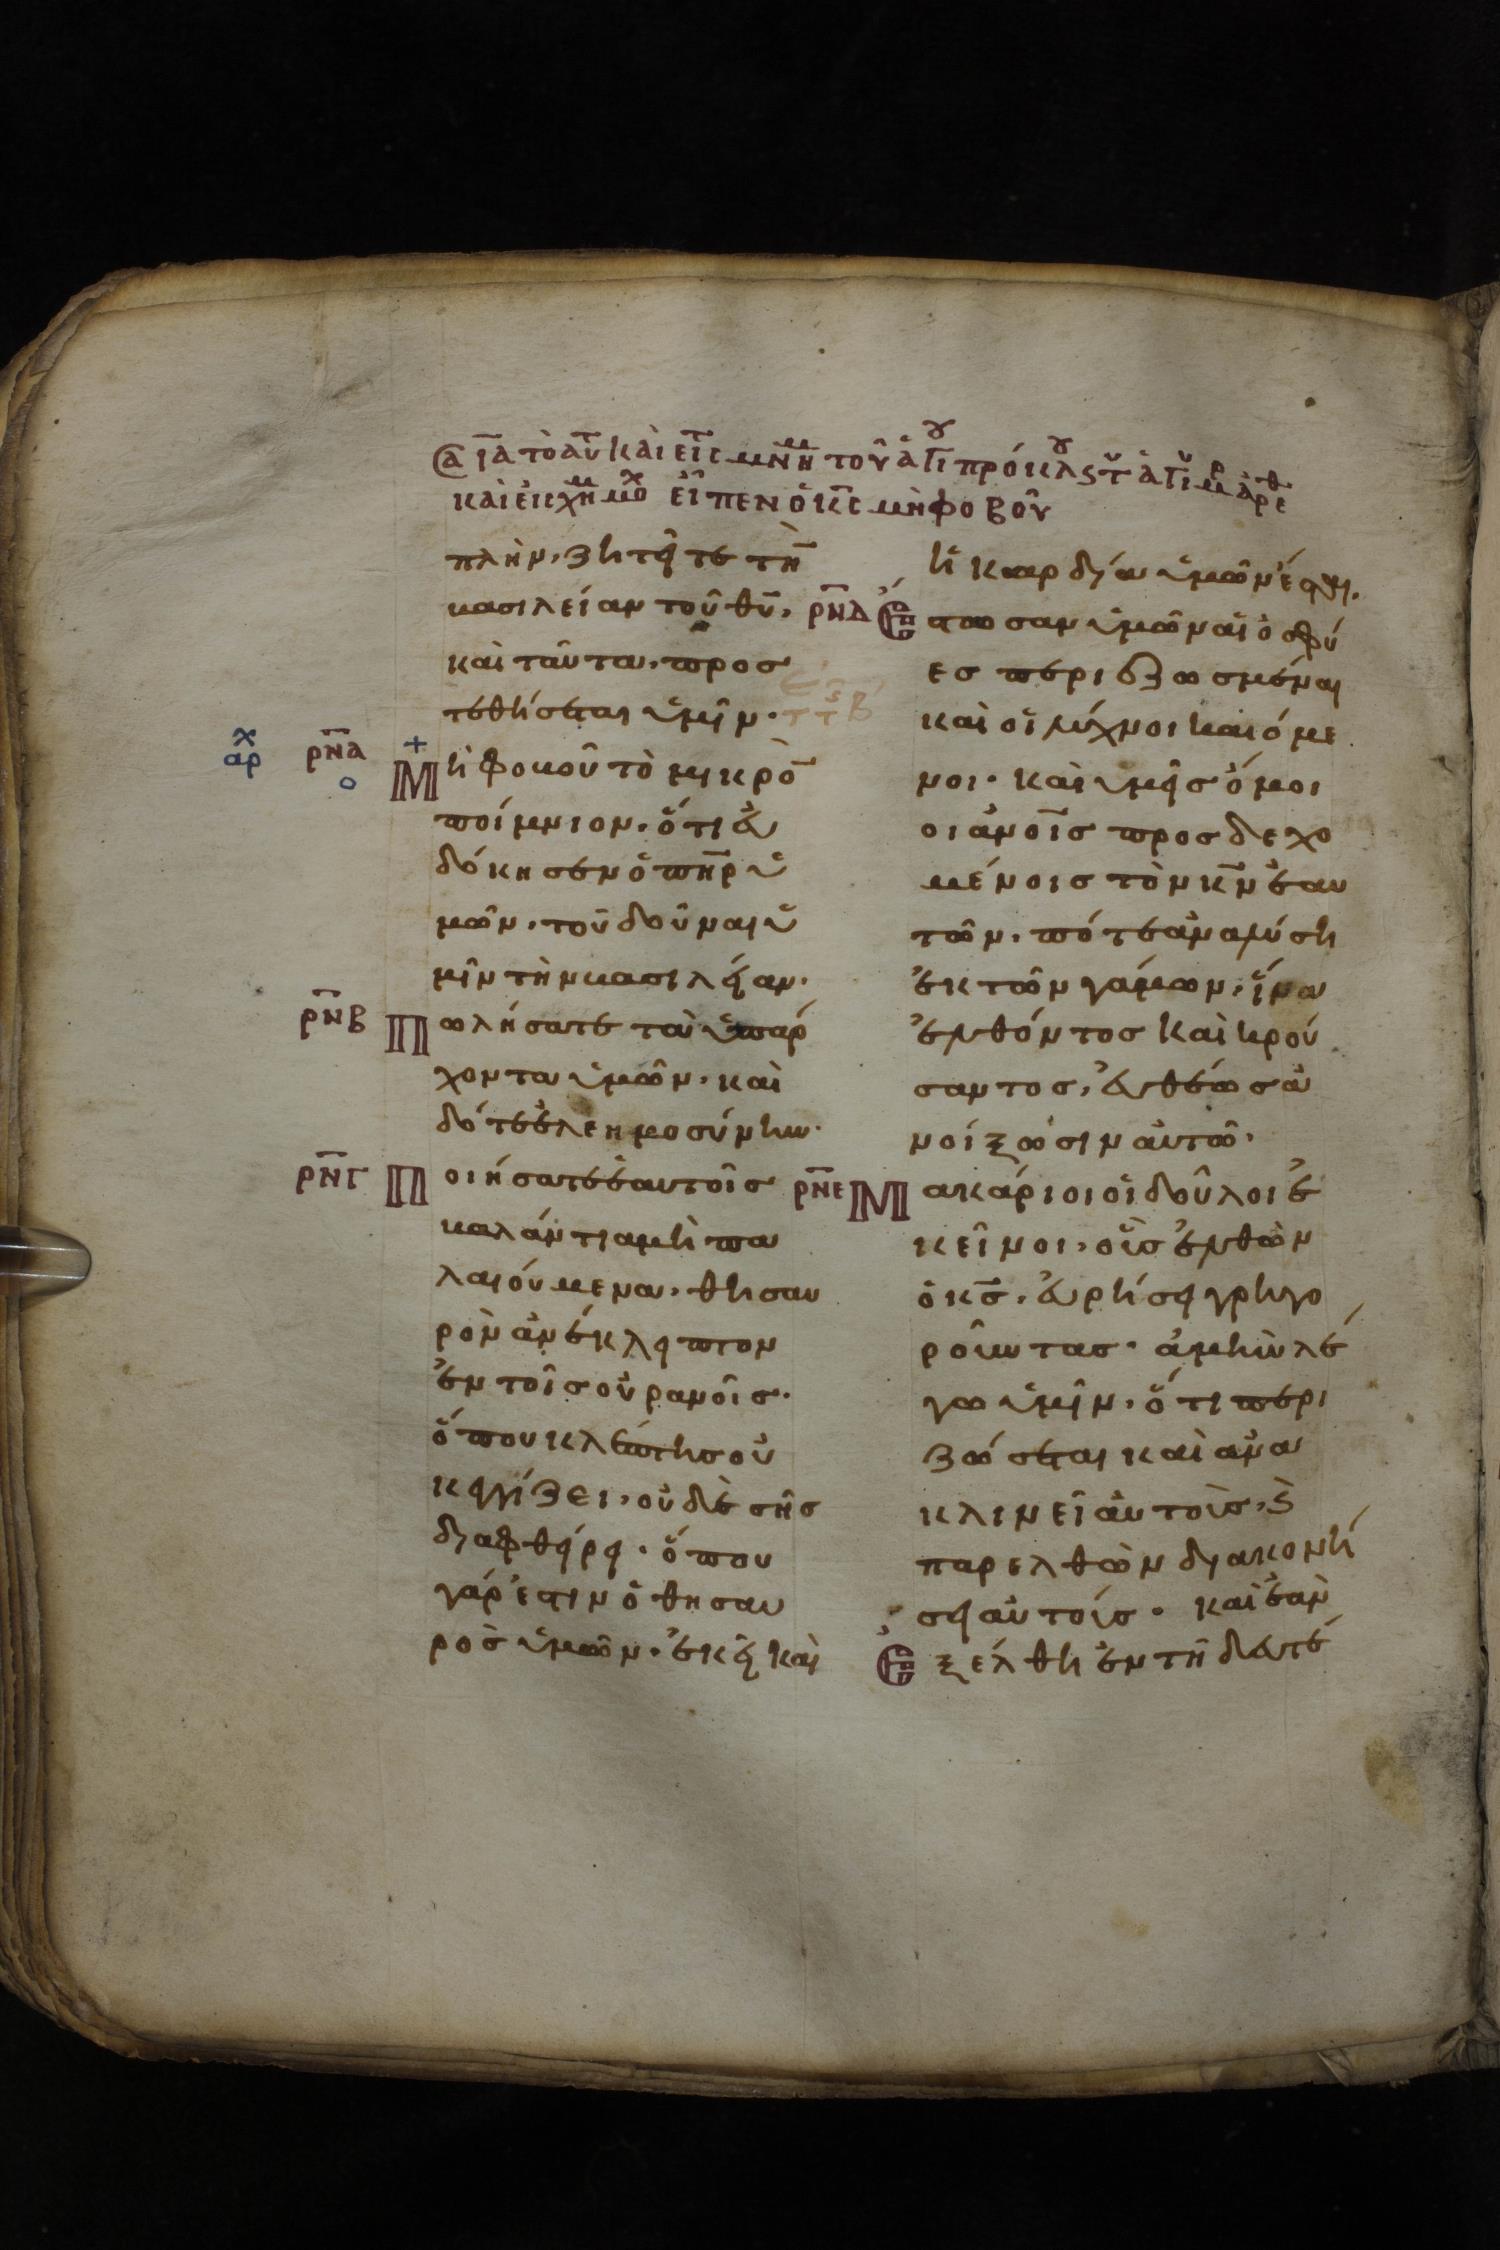 πλὴν, ζητεῖτε τὴ̅
βασιλείαν τοῦ θῡ,
καὶ ταῦτα, προσ
τεθήσεται ὑμῖν·
χ
αρ
ρ̅ν̅α
+
Μὴ φοβοῦ τὸ μικρὸ̅
ποίμνιον, ὅτι εὐ
δόκησεν ὁ π̅η̅ρ ὑ
μῶν, τοῦ δοῦναι ὑ
μῖν τὴν βασιλείαν.
ρ̅ν̅β
Πωλήσατε τὰ ὑπάρ
χοντα ὑμῶν, καὶ
δότε ἐλεημοσύνην.
ρ̅ν̅γ
Ποιήσατε ἑαυτοῖς
βαλάντια μὴ πα
λαιούμενα, θησαυ
ρὸν ἀνέκλειπτον
ἐν τοῖς οὐρανοῖς.
ὅπου κλέπτης οὐ
κ ἐγγίζει, οὐδὲ σὴς
διαφθείρει· ὅπου
γάρ ἐστιν ὁ θησαυ
ρὸς ὑμῶν, ἐκεῖ καὶ
ἡ καρδία ὑμῶν ἔσται.
ρ̅ν̅δ
Ἔστωσαν ὑμῶν αἱ ὀσφύ
ες περιεζωσμέναι
καὶ οἱ λύχνοι καιόμε
νοι· καὶ ὑμεῖς ὅμοι
οι ἀνο̅ι̅ς προσδεχο
μένοις τὸν κ̅ν ἑαυ
τῶν, πότε ἀναλύσῃ
ἐκ τῶν γάμων, ἵνα
ἐλθόντος καὶ κρού
σαντος, εὐθέως ἀ
νοίξωσιν αὐτῶ.
ρ̅ν̅ε
Μακάριοι οἱ δοῦλοι ἐ
κεῖνοι, οὓς ἐλθὼν
ὁ κ̅ς, εὑρήσει γρηγο
ροῦντας· ἀμὴν λέ
γω ὑμῖν, ὅτι περι
ζώσεται καὶ ανα
κλινεῖ αὐτοὺς, ϗ
παρελθὼν διακονή
σει αὐτοίς· καὶ ἐὰν
Ἐξέλθῃ ἐν τῇ δευτέ